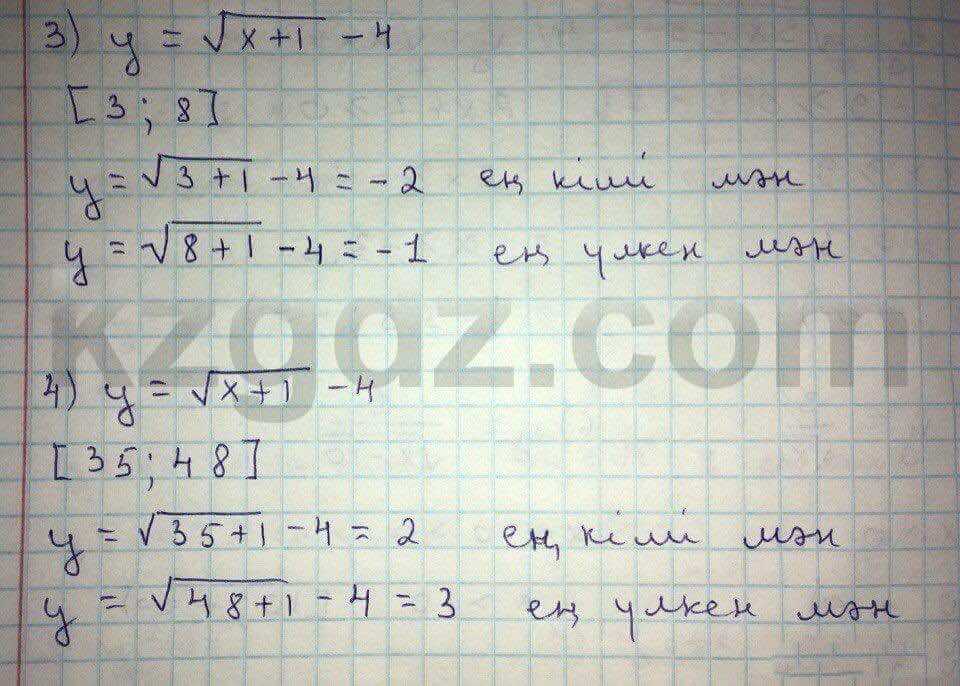 3) y = √x+1 - 4
[3; 8]
y = √3+1 - 4 = -2 ең кіші мән
y = √8+1 - 4 = -1 ең үлкен мән
kzgdz.com
4) y = √x+1 - 4
[35; 48]
y = √35+1 - 4 = 2 ең кіші мән
y = √48+1 - 4 = 3 ең үлкен мән